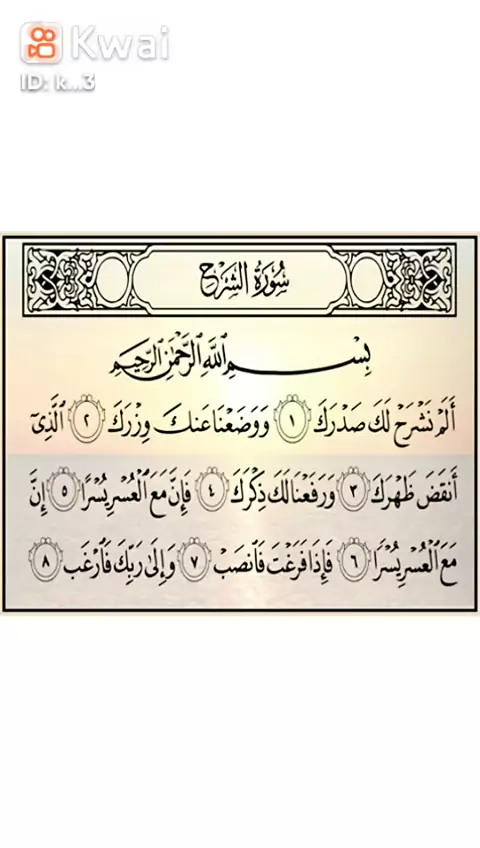 Kwai
ID: k...3
سُورَةُ الشَّرْحِ
بِسْمِ ٱللَّهِ ٱلرَّحْمَٰنِ ٱلرَّحِيمِ
أَلَمْ نَشْرَحْ لَكَ صَدْرَكَ ١ وَوَضَعْنَا عَنكَ وِزْرَكَ ٢ ٱلَّذِىٓ
أَنقَضَ ظَهْرَكَ ٣ وَرَفَعْنَا لَكَ ذِكْرَكَ ٤ فَإِنَّ مَعَ ٱلْعُسْرِ يُسْرًا ٥ إِنَّ
مَعَ ٱلْعُسْرِ يُسْرًا ٦ فَإِذَا فَرَغْتَ فَٱنصَبْ ٧ وَإِلَىٰ رَبِّكَ فَٱرْغَب ٨